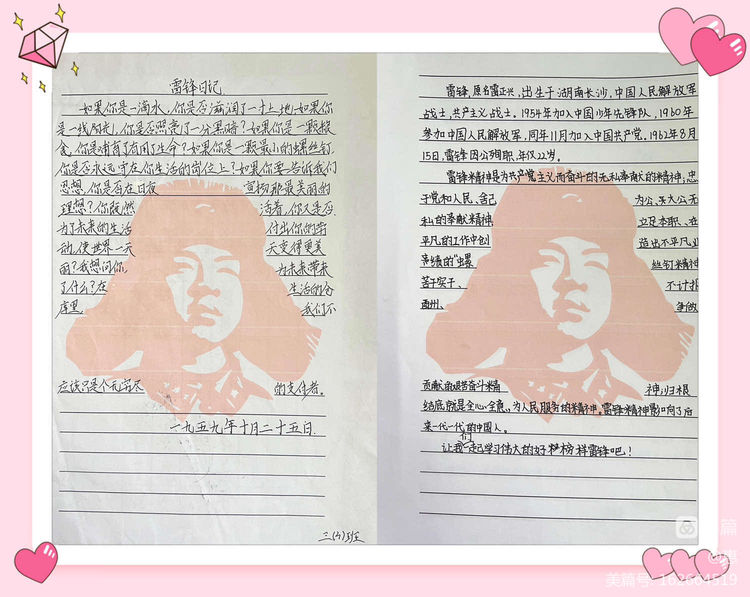 雷锋日记
如果你是一滴水,你是否滋润了一寸土地如果你
是一线阳光,你是否照亮了一分黑暗?如果你是一颗粮
食,你是哺育了有用了生命?如果你是一颗最小的螺丝钉
你是否永远守在你生活的岗位上?如果你要告诉我们
思想,你是否在日夜 宣扬那最美丽的
理想?你既然 活着,你又是否
为了未来的生活 付出你的劳
动,使世界一天 天变得更美
丽?我想问你, 为未来带来
了什么?在 生活的仓
库里 我们不
应该只是个无穷尽 的支付者。
一九五九年十月二十五日
三(4)班
雷锋,原名雷正兴,出生于湖南长沙,中国人民解放军
战士,共产主义战士。1954年加入中国少年先锋队,1960年
参加中国人民解放军,同年11月加入中国共产党。1962年8月
15日,雷锋因公殉职,年仅22岁。
雷锋精神是为共产党主义而奋斗的无私奉献的精神;忠
于党和人民、舍己 为公、大公无
私的奉献精神 立足本职、在
平凡的工作中创 造出不平凡业
的“螺 丝钉精神
苦干实干、 不计报
酬、 争做
贡献的艰苦奋斗精 神,归根
结底就是全心全意、为人民服务的精神。雷锋精神影响了后
来一代一代的中国人。
让我们一起学习伟大的好榜样雷锋吧!
美篇号:162664519